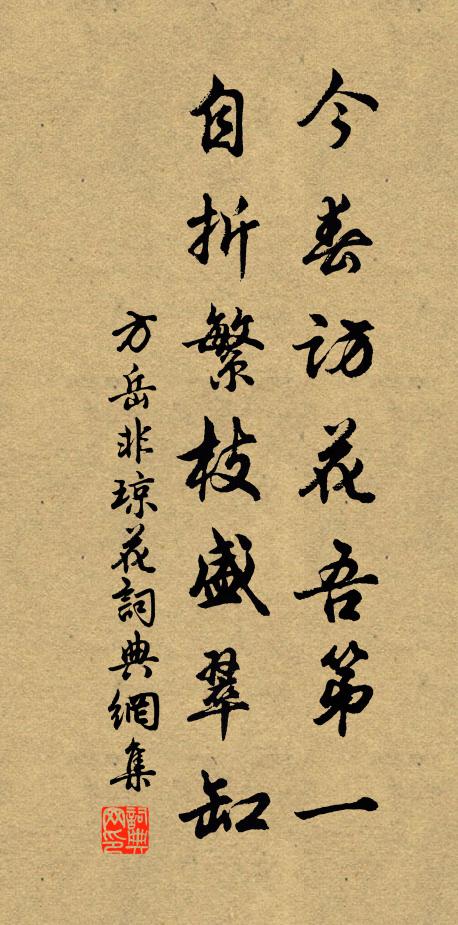 今春訪花吾第一
自折繁枝盛翠缸
方岳非瓊花詞典網集
詞典網印